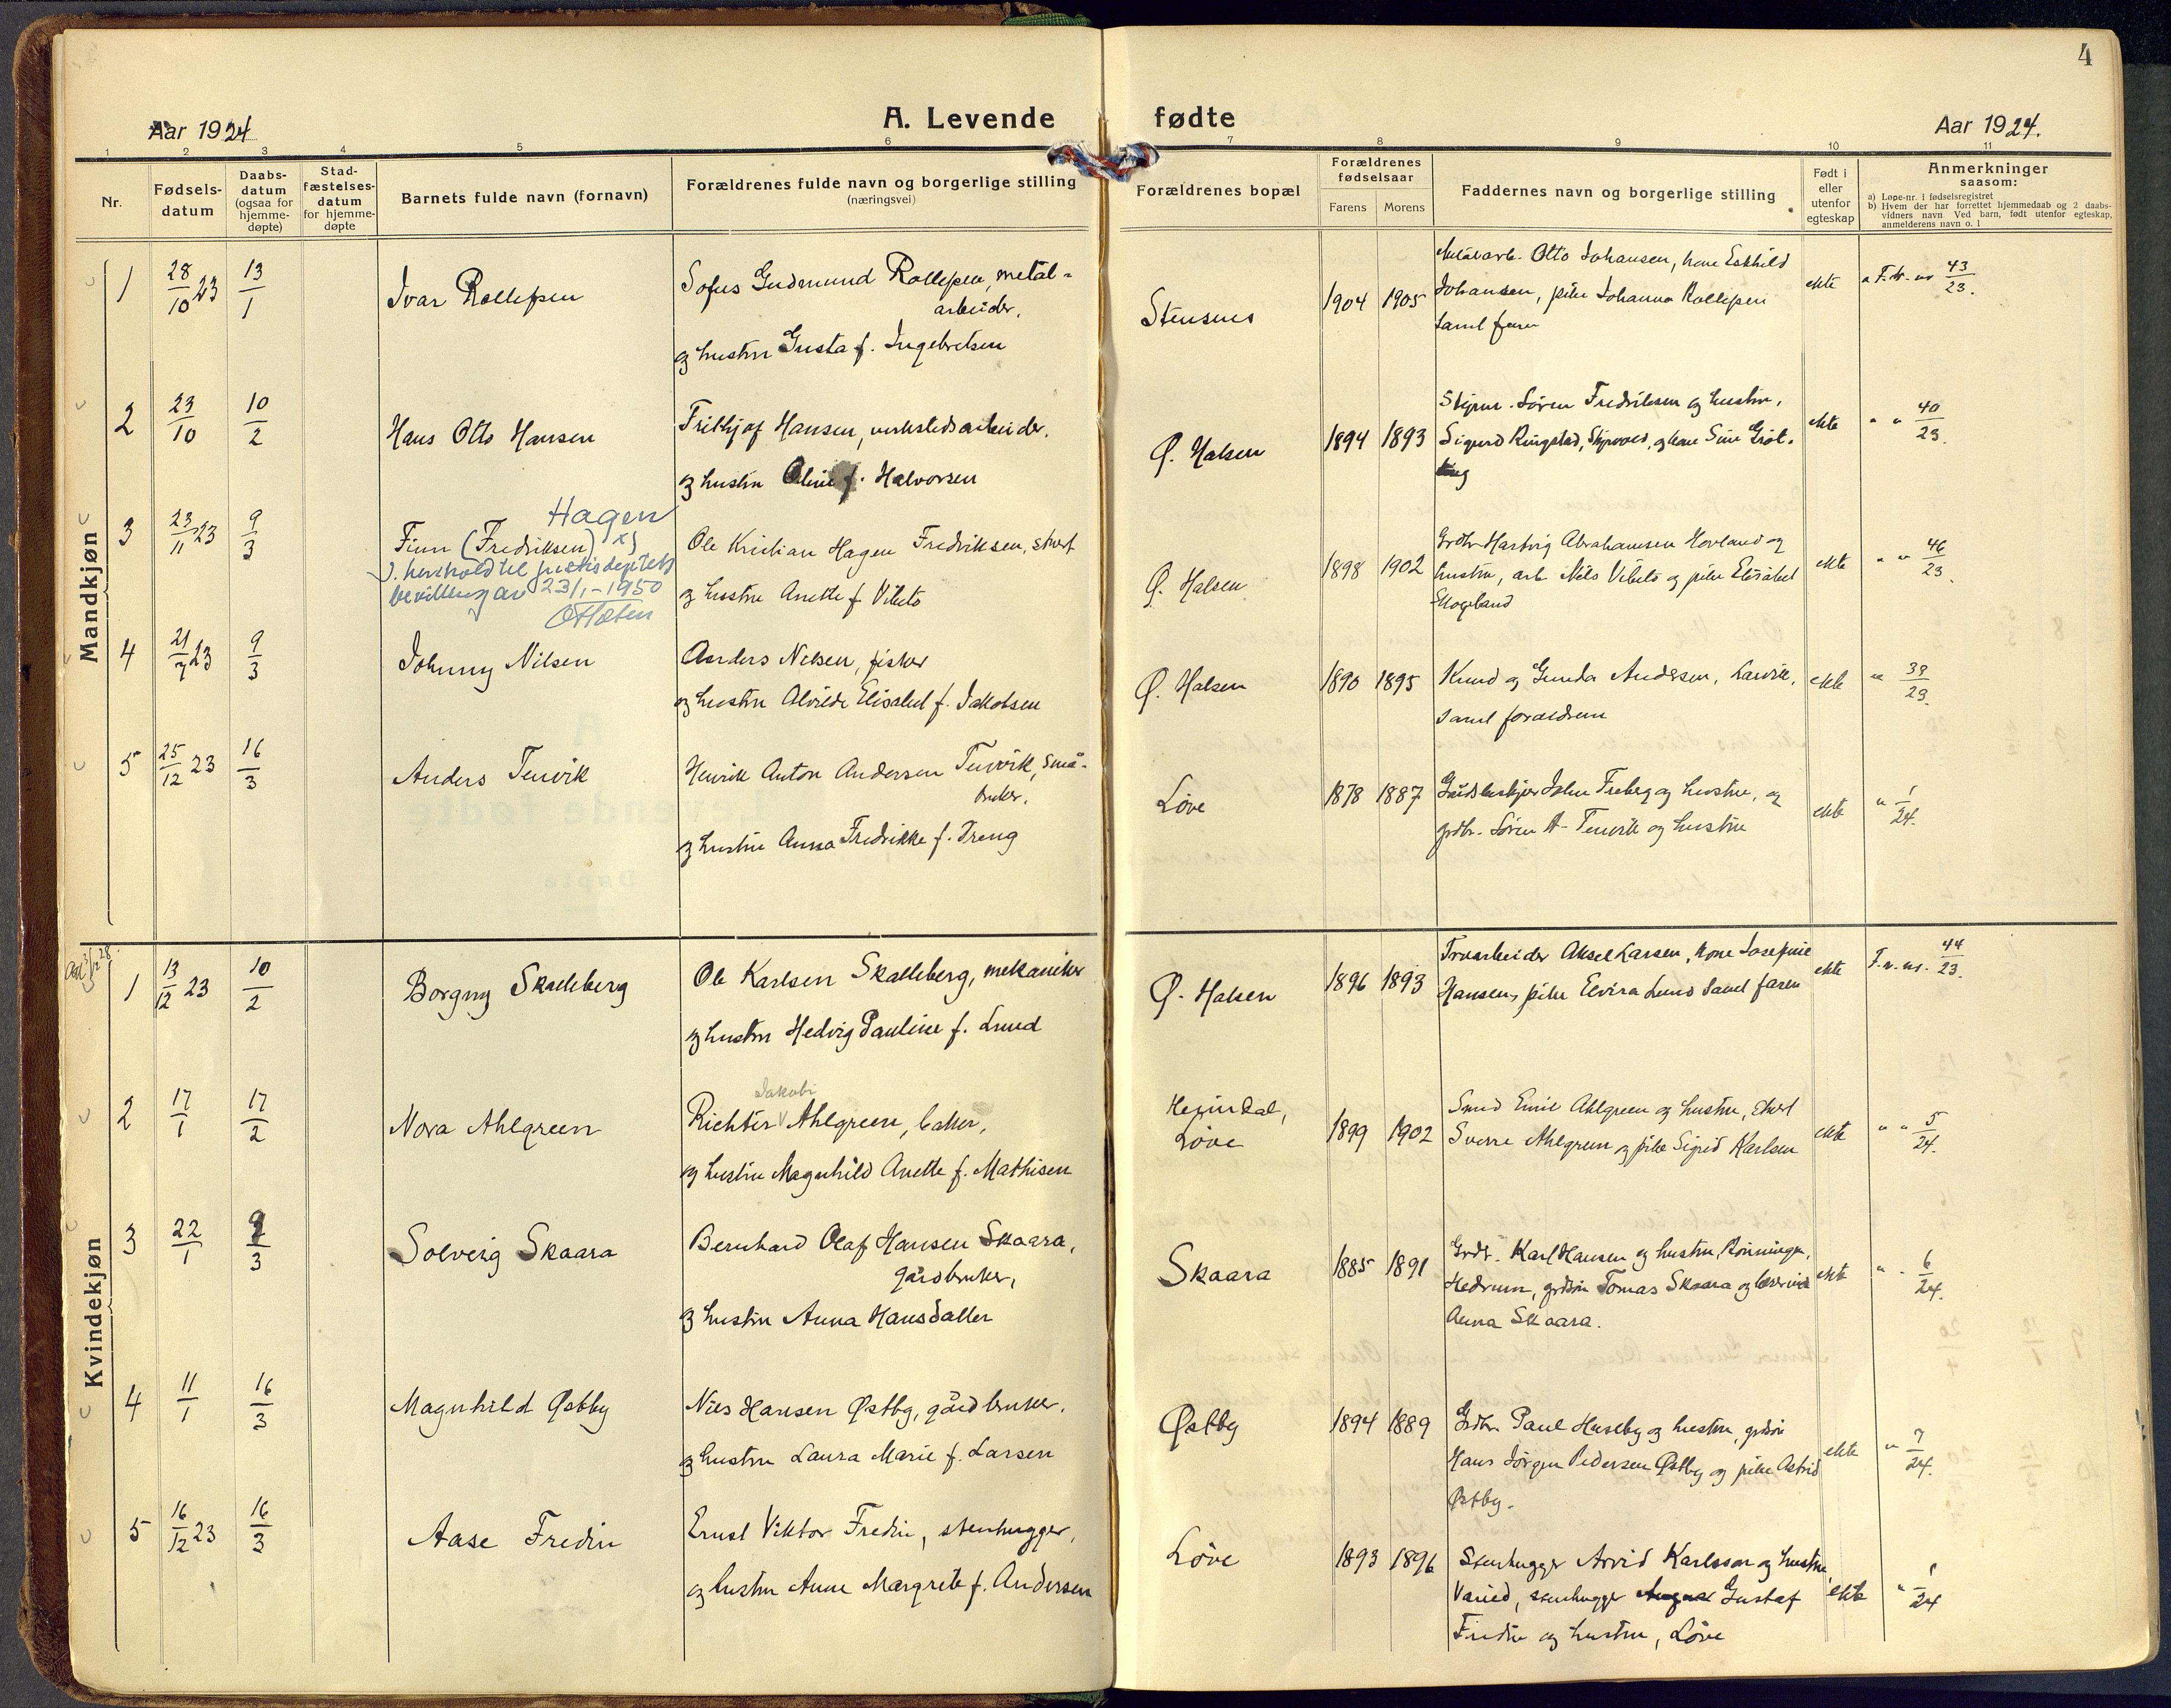 4
Aar 1924
A. Levende fødte
Aar 1924.
1 2 3 4 5 6 7 8 9 10 11
Nr.
Fødsels-
datum
Daabs-
datum
(ogsaa for
hjemme-
døpte)
Stad-
fæstelses-
datum
for hjemme-
døpte
Barnets fulde navn (fornavn)
Forældrenes fulde navn og borgerlige stilling
(næringsvei)
Forældrenes bopæl
Forældrenes
fødselsaar
Farens Morens
Faddernes navn og borgerlige stilling
Født i
eller
utenfor
egteskap
Anmerkninger
saasom:
a) Løpe-nr. i fødselsregistret
b) Hvem der har forrettet hjemmedaab og 2 daabs-
vidners navn Ved barn, født utenfor egteskap,
anmelderens navn o. l
Mandkjøn
1 28/10 23 13/1 Ivar Rollefsen
Sofus Gudmund Rollefsen, metal-
arbeider,
og hustru Gusta f. Ingebretsen
Stensnes 1904 1905
Otto Johansen, kone
Johansen, pike Johanna Rollefsen
samt faren
ekte F. nr 43/23.
2 23/10 10/2 Hans Otto Hansen
Frithjof Hansen, verkstedsarbeider.
og hustru Oline f. Halvorsen
Ø. Halsen 1894 1893
Søren Fredriksen og hustru,
Sigurd Ringstad, og kone
ekte " " 40/23.
3 23/11 23 9/3 Finn (Fredriksen) x)
Hagen
). henhold til justisdeptets
bevilling av 23/1-1950
Ole Kristian Hagen Fredriksen, stuert
og hustru Anette f. Vibeto
Ø. Halsen 1898 1902
Grdbr Hartvig Abrahamsen Hovland og
hustru, arb. Nils Vibeto og pike Elisabet
Skogland
ekte " " 46/23.
4 21/7 23 9/3 Johnny Nilsen
Anders Nilsen, fisker
og hustru Alvilde Elisabet f. Jakobsen
Ø. Halsen 1890 1895
Knud og Gunda Andersen, Larvik,
samt forældrene
ekte " 33/23.
5 25/12 23 16/3 Anders Tenvik
Henrik Anton Andersen Tenvik, små-
bruker.
og hustru Anna Fredrikke f. Treng
Løve 1878 1887
Gårdsbestyrer John Freberg og hustru, og
grdbr. Søren A. Tenvik og hustru
ekte " 1/24.
Kvindekjøn
1 13/12 23 10/2 Borgny Skalleberg
Ole Karlsen Skalleberg, mekaniker
og hustru Hedvig Pauline f. Lund
Ø. Halsen 1896 1893
Aksel Larsen, kone Josefine
Hansen, pike Elvira Lund samt faren
ekte F. r. nr. 44/23.
2 17/1 17/2 Nora Ahlgreen
Jakobi
Richter Ahlgreen, baker,
og hustru Magnhild Anette f. Mathisen
Heimdal,
Løve 1899 1902
Smed Emil Ahlgreen og hustru,
Sverre Ahlgreen og pike Sigrid Karlsen
ekte " " 5/24.
3 22/1 9/3 Solveig Skaara
Bernhard Olaf Hansen Skaara,
gårdbruker,
og hustru Anna Hansdatter
Skaara 1885 1891
Grdbr. Karl Hansen og hustru, Rønningen,
Hedrum, grdsøn Tomas Skaara og lærerinde
Anna Skaara.
ekte " " 6/24.
4 11/1 16/3 Magnhild Østby
Nils Hansen Østby, gårdbruker.
og hustru Laura Marie f. Larsen
Østby 1894 1889
Grdbr. Paul Huseby og hustru, grdsøn
Hans Jørgen Pedersen Østby og pike Astrid
Østby.
ekte " 7/24.
5 16/12 23 16/3 Aase Fredin
Ernst Viktor Fredin, stenhugger,
og hustru Anne Margrete f. Andersen
Løve 1893 1896
Stenhugger Arvid Karlsson og hustru
stenhugger Gustaf
Fredin og hustru, Løve
ekte " 1/24